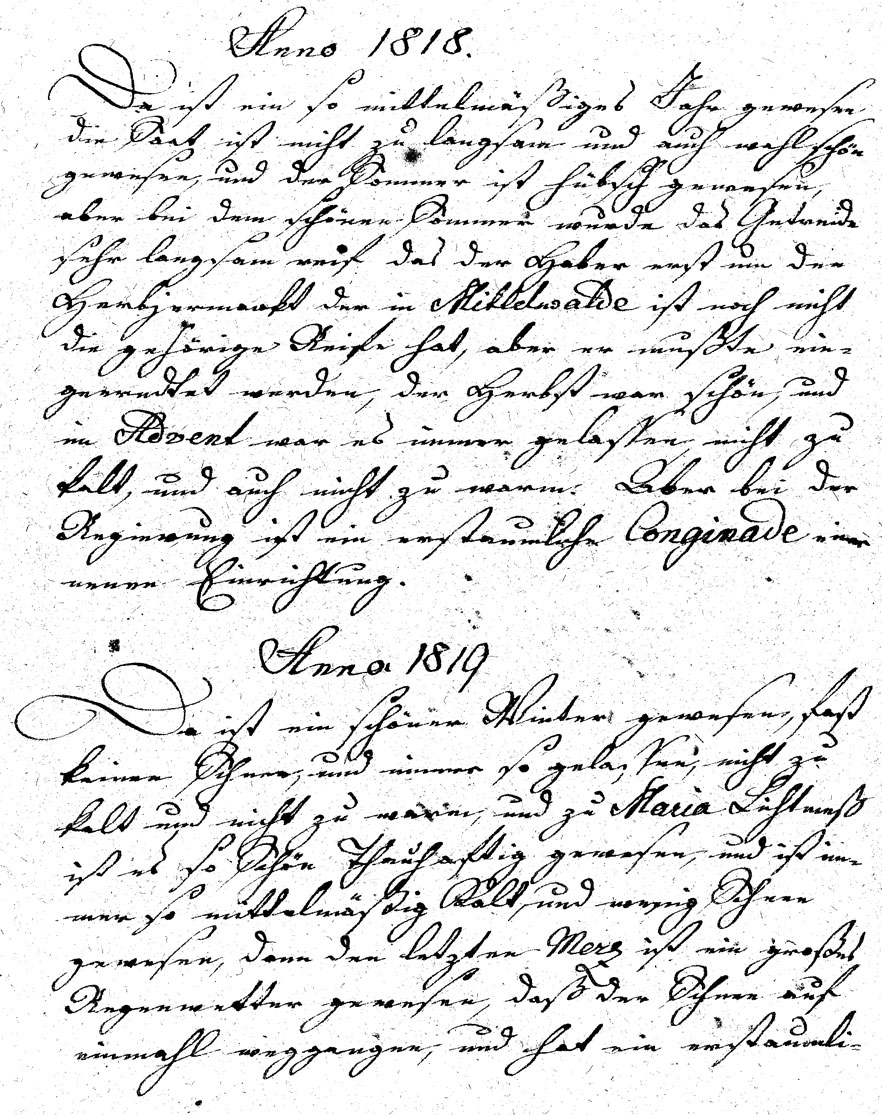 Anno 1818.
Da ist ein so mittelmäßiges Jahr gewesen
die Saat ist nicht zu langsam und auch wohl schön
gewesen, und der Sommer ist hübsch gewesen,
aber bei dem schönen Sommer wurde das Getreide
sehr langsam reif das der Haber erst um den
Herbstjermarkt der in Mittelwalde ist noch nicht
die gehörige Reife hat, aber er mußte ein-
geerndtet werden, der Herbst war schön, und
im Advent war es immer gelassen nicht zu
kalt, und auch nicht zu warm. Aber bei der
Regierung ist ein erstaunliche einer
neuen Einrichtung.
Anno 1819
Da ist ein schöner Winter gewesen, fast
keinen Schnee, und immer so gelassen, nicht zu
kalt und nicht zu warm, und zu Maria Lichtmeß
ist es so Schön Thauhaftig gewesen, und ist im-
mer so mittelmäßig Kalt und wenig Schnee
gewesen, dann den letzten Merz ist ein großes
Regenwetter gewesen, daß der Schnee auf
einmahl weggangen, und hat ein erstaunli-